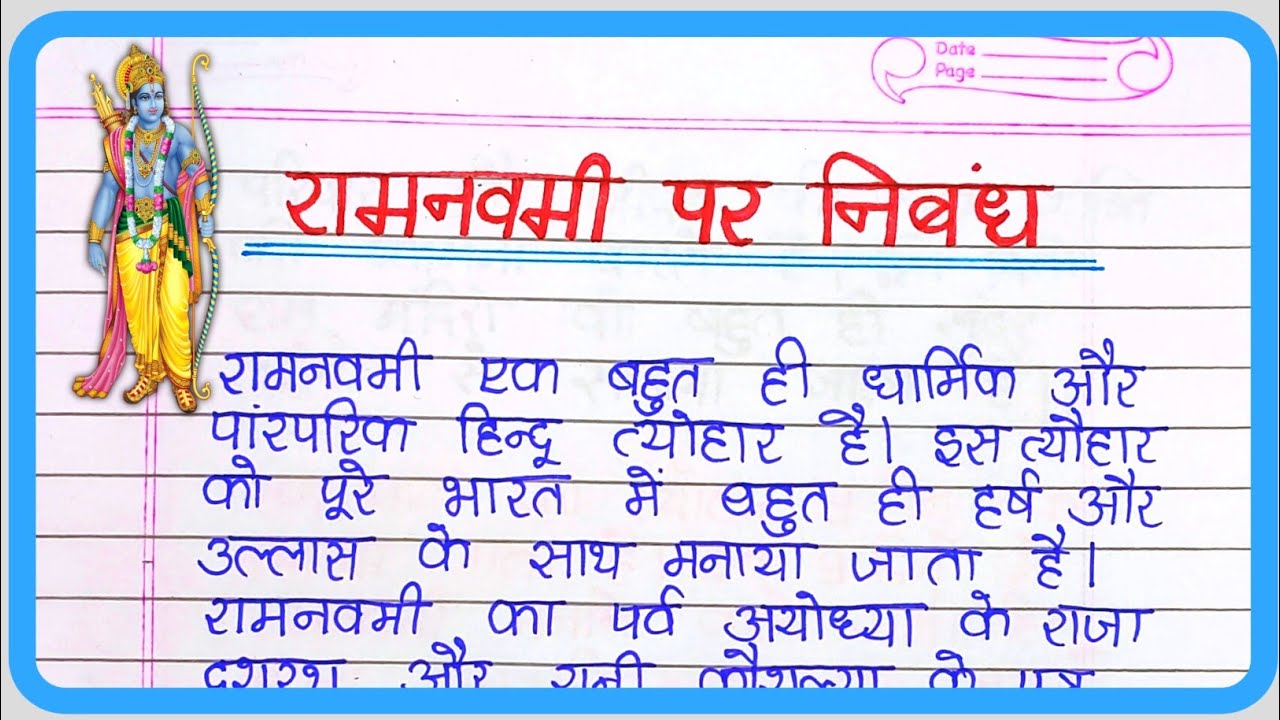 Date
Page
रामनवमी पर निबंध
रामनवमी एक बहुत ही धार्मिक और
पांरपरिक हिन्दू त्योहार है। इस त्यौहार
को पूरे भारत में बहुत ही हर्ष और
उल्लास के साथ मनाया जाता है।
रामनवमी का पर्व अयोध्या के राजा
दशरथ और रानी कौशल्या के पुत्र